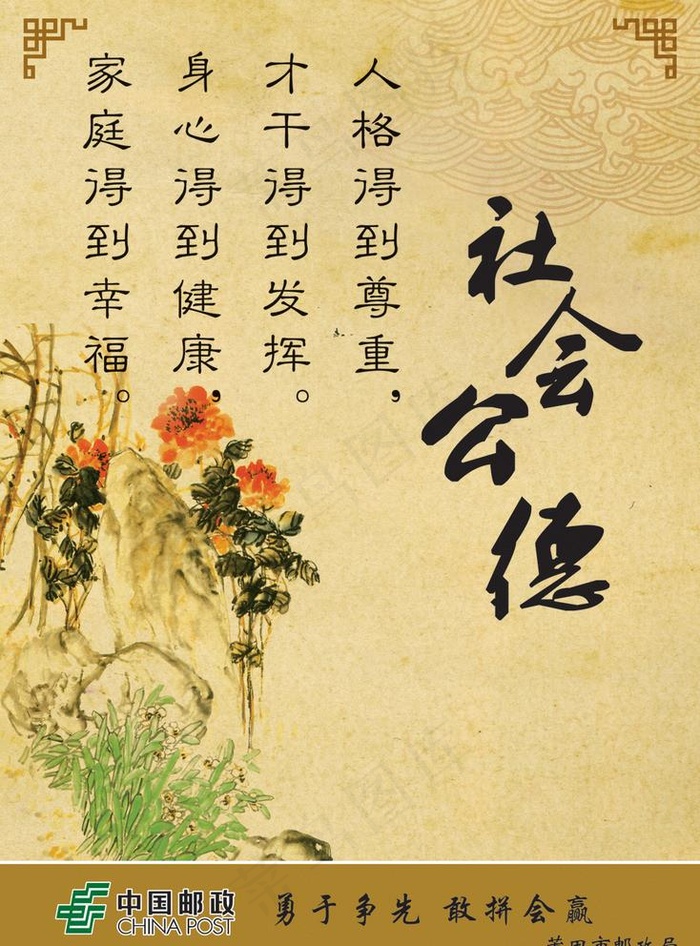 社会公德
人格得到尊重，
才干得到发挥。
身心得到健康，
家庭得到幸福。
中国邮政
CHINA POST
勇于争先 敢拼会赢
莆田市邮政局